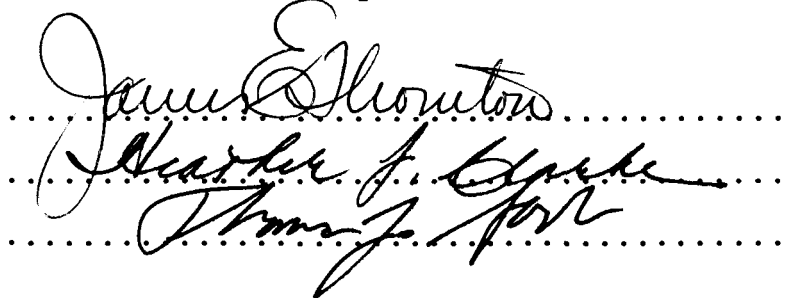 James E Thornton
Heather J. Clarke
Thomas J.